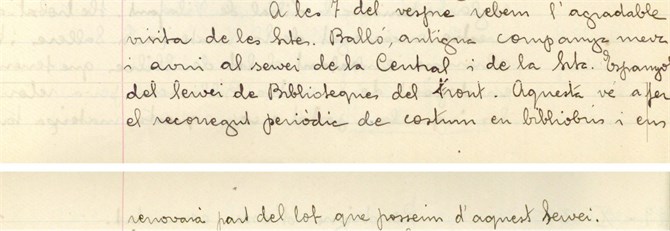 A les 7 del vespre rebem l'agradable
visita de les Srtes. Balló, antiga companya meva
i avui al servei de la Central i de la Srta. Espanyol
del Servei de Biblioteques del Front. Aquesta ve a fer
el recorregut periòdic de costum en bibliobús i ens
renovarà part del lot que posseim d'aquest Servei.